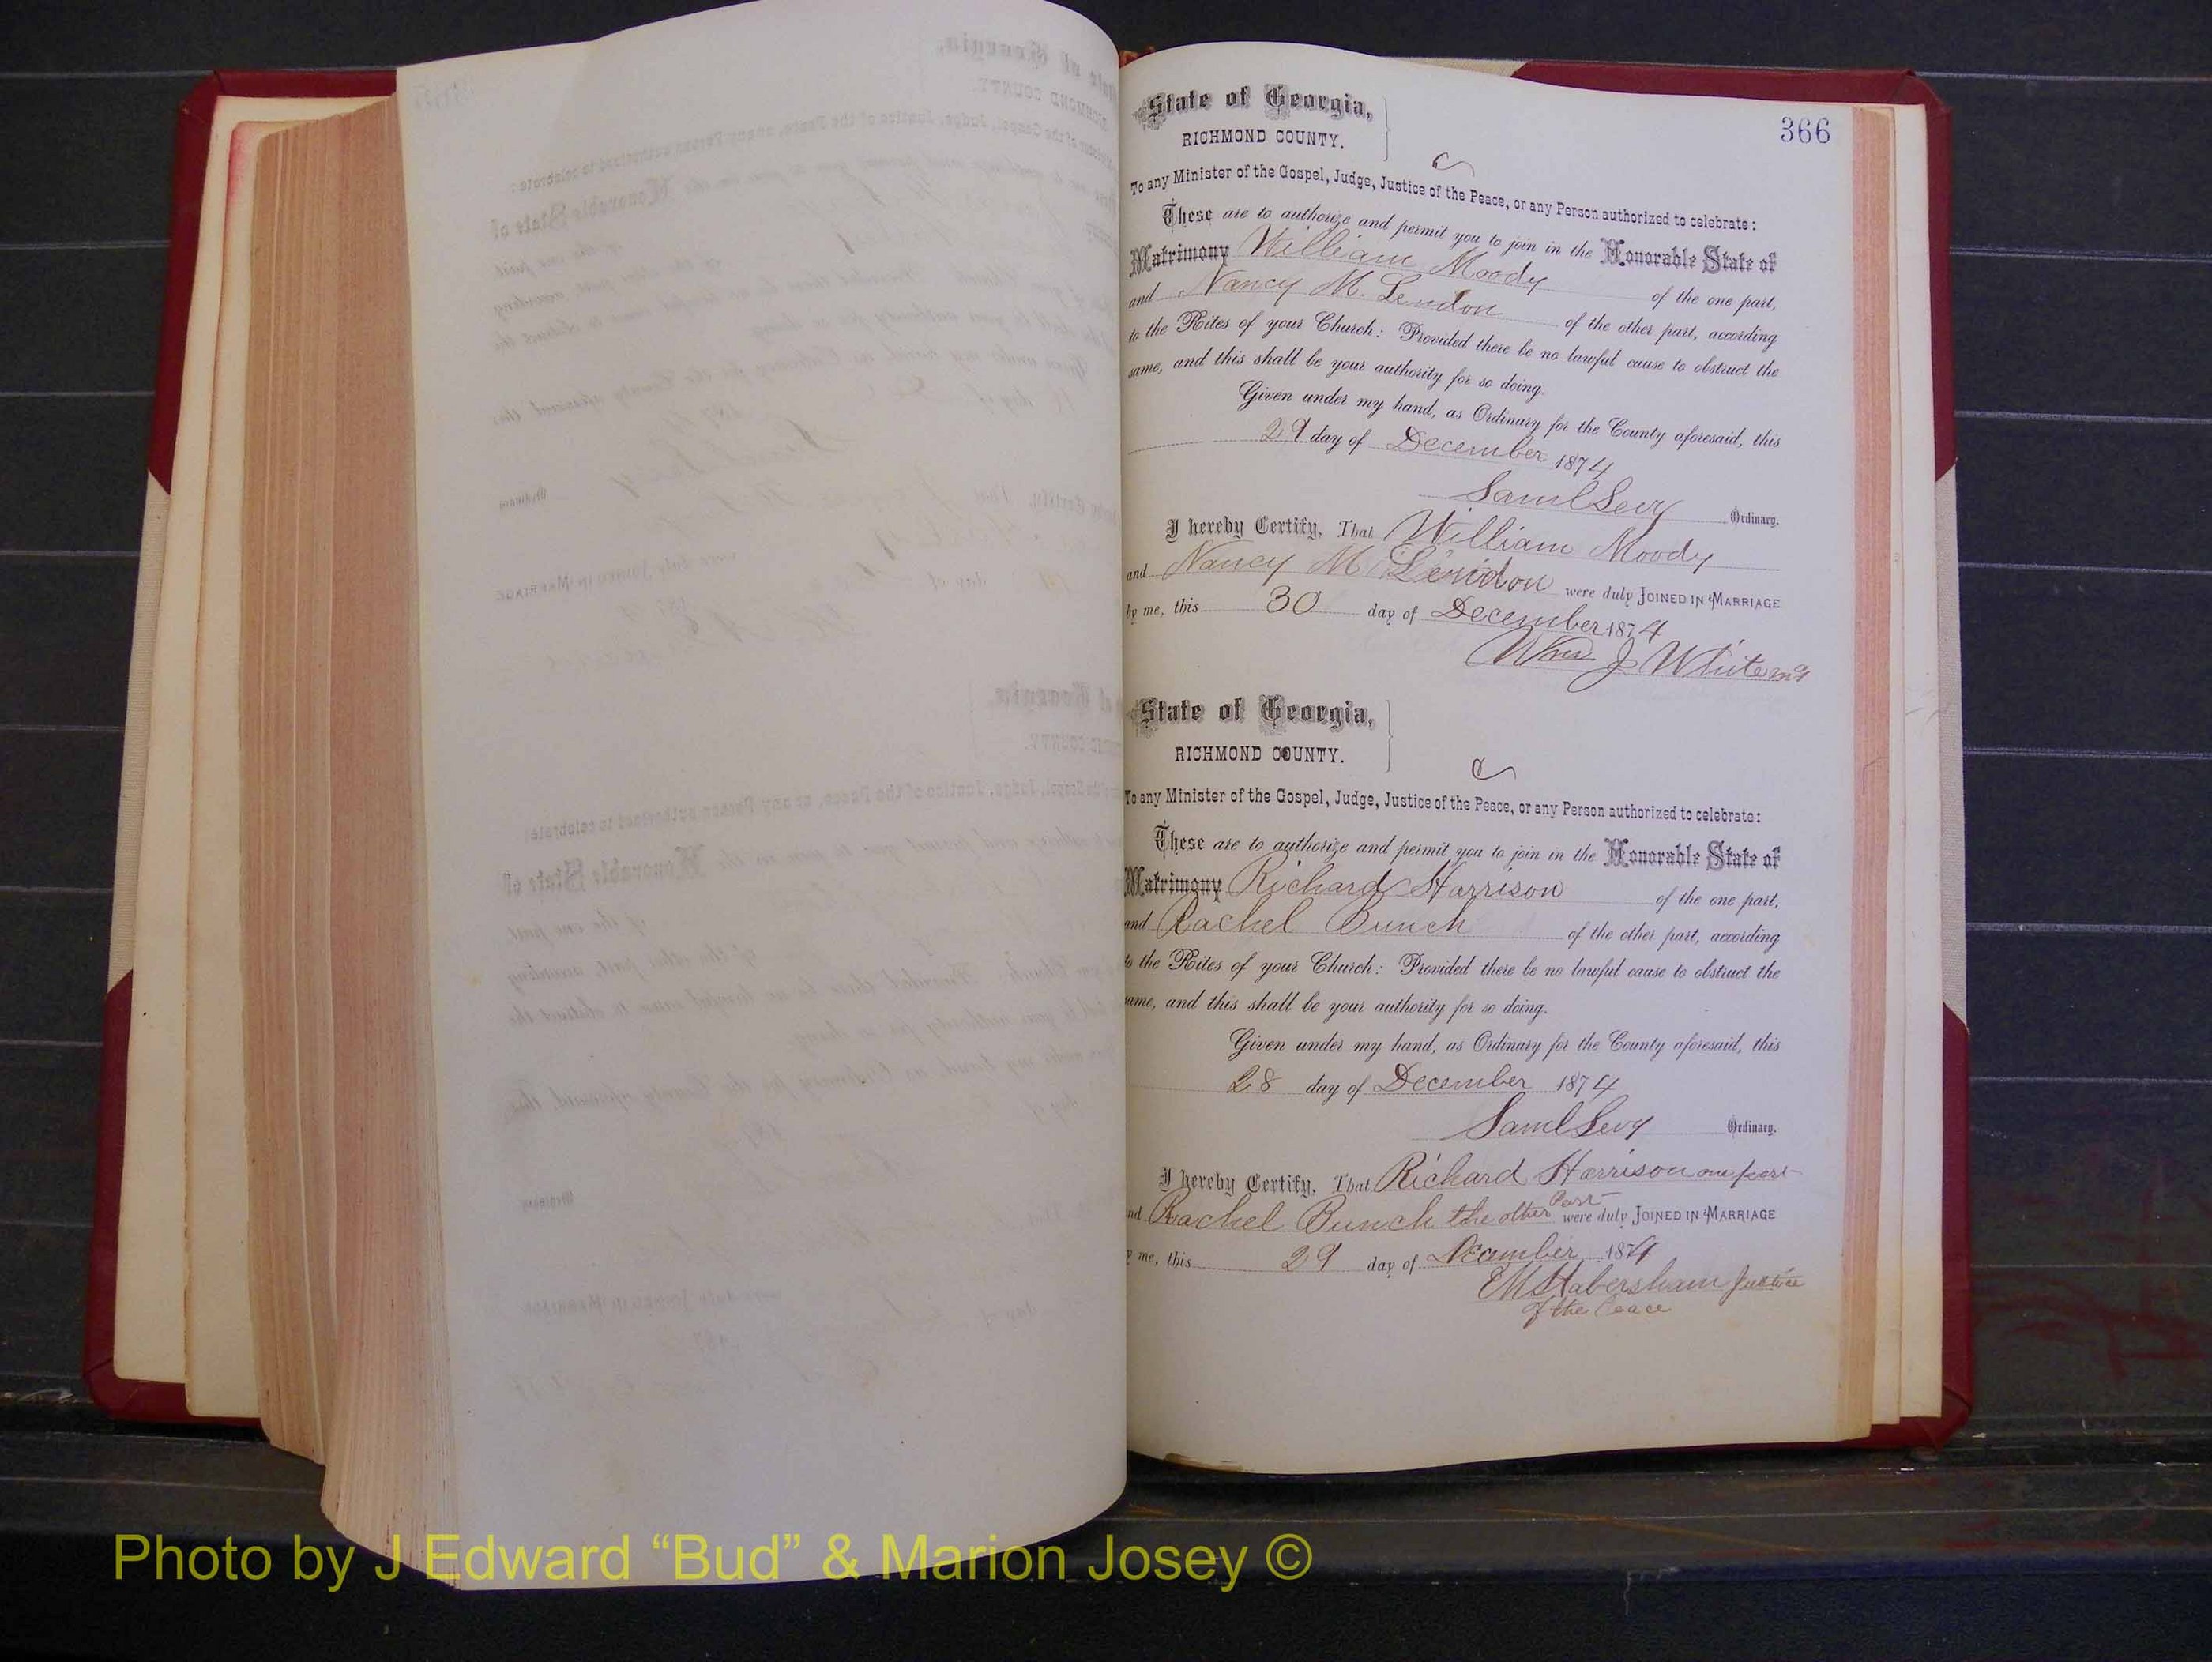 366
State of Georgia,
RICHMOND COUNTY.
C
To any Minister of the Gospel, Judge, Justice of the Peace, or any Person authorized to celebrate:
These are to authorize and permit you to join in the Honorable State of
Matrimony William Moody of the one part,
and Nancy M. Lendon of the other part, according
to the Rites of your Church: Provided there be no lawful cause to obstruct the
same, and this shall be your authority for so doing.
Given under my hand, as Ordinary for the County aforesaid, this
29 day of December 1874
Saml Levy Ordinary.
I hereby Certify, That William Moody
and Nancy M Lendon were duly JOINED IN MARRIAGE
by me, this 30 day of December 1874
Wm J White mg
State of Georgia,
RICHMOND COUNTY.
C
To any Minister of the Gospel, Judge, Justice of the Peace, or any Person authorized to celebrate:
These are to authorize and permit you to join in the Honorable State of
Matrimony Richard Harrison of the one part,
and Rachel Bunch of the other part, according
to the Rites of your Church: Provided there be no lawful cause to obstruct the
same, and this shall be your authority for so doing.
Given under my hand, as Ordinary for the County aforesaid, this
28 day of December 1874
Saml Levy Ordinary.
I hereby Certify, That Richard Harrison one part
nd Rachel Bunch the other Part were duly JOINED IN MARRIAGE
y me, this 29 day of December 1874
EM Habersham Justice
of the Peace
Photo by J Edward “Bud” & Marion Josey ©